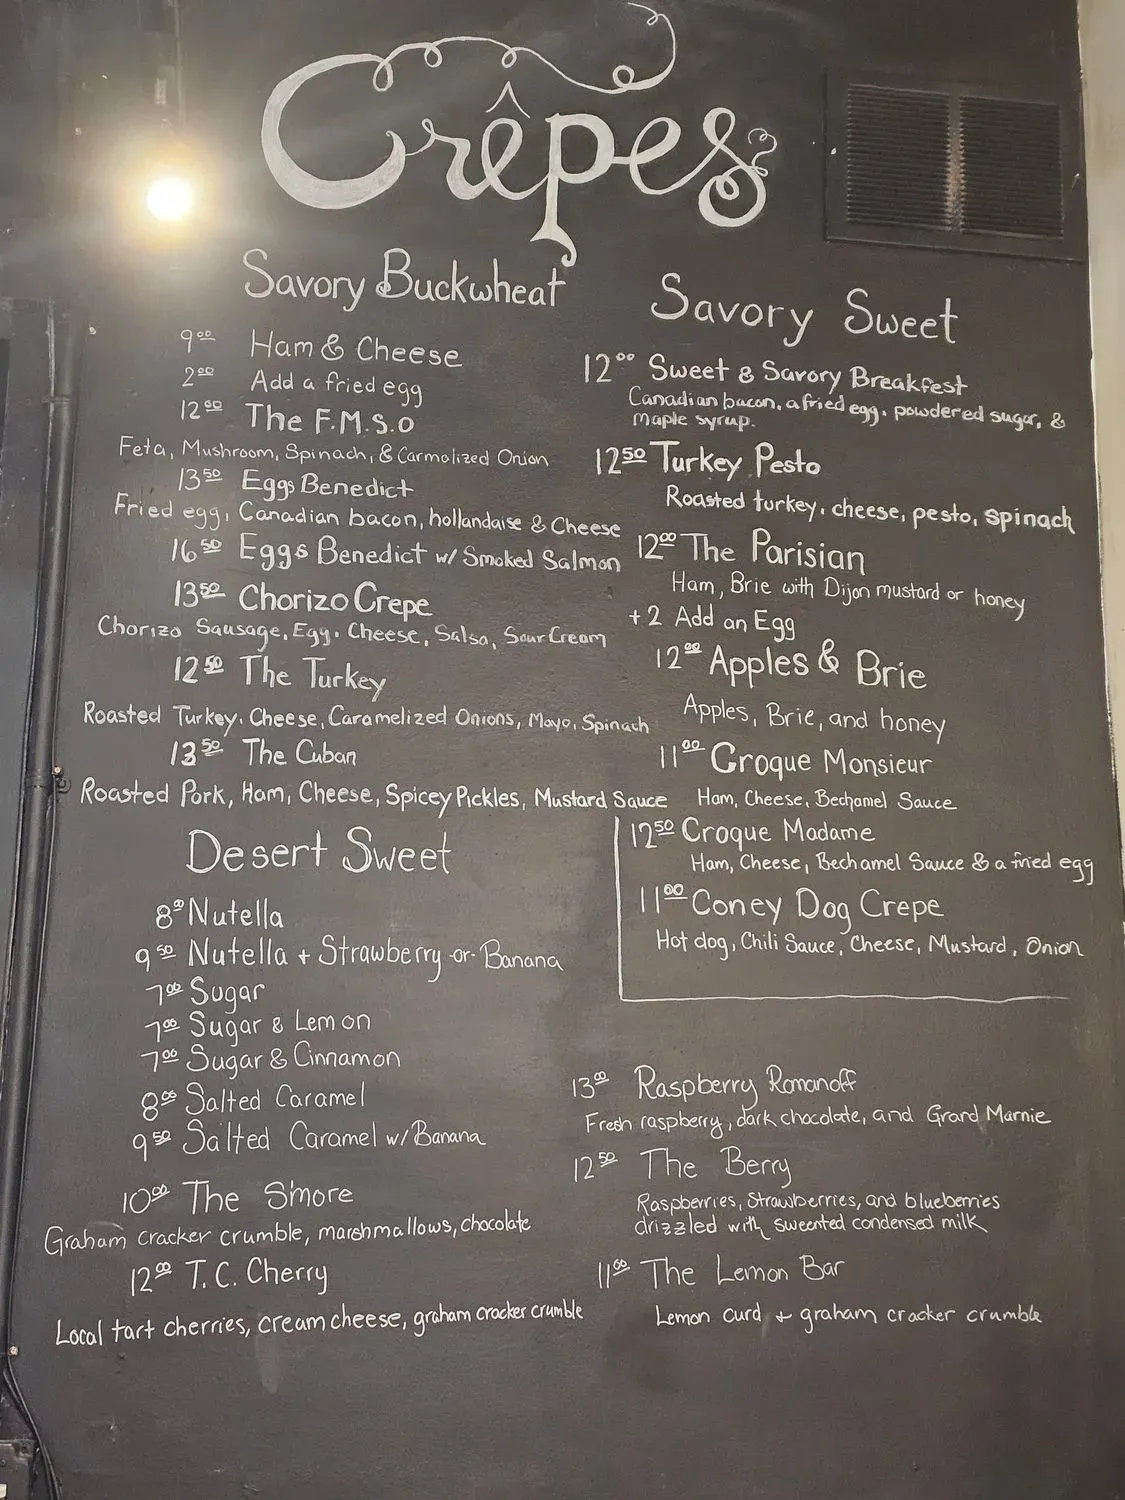 Crêpes
Savory Buckwheat
9.00 Ham & Cheese
2.00 Add a fried egg
12.00 The F.M.S.O
Feta, Mushroom, Spinach, & Carmolized Onion
13.50 Eggs Benedict
Fried egg, Canadian bacon, hollandaise & Cheese
16.50 Eggs Benedict w/ Smoked Salmon
13.50 Chorizo Crepe
Chorizo Sausage, Egg, Cheese, Salsa, Sour Cream
12.50 The Turkey
Roasted Turkey, Cheese, Caramelized Onions, Mayo, Spinach
13.50 The Cuban
Roasted Pork, Ham, Cheese, Spicey Pickles, Mustard Sauce
Savory Sweet
12.00 Sweet & Savory Breakfest
Canadian bacon, a fried egg, powdered sugar, &
maple syrup.
12.50 Turkey Pesto
Roasted turkey, cheese, pesto, spinach
12.00 The Parisian
Ham, Brie with Dijon mustard or honey
+2 Add an Egg
12.00 Apples & Brie
Apples, Brie, and honey
11.00 Croque Monsieur
Ham, Cheese, Bechamel Sauce
12.50 Croque Madame
Ham, Cheese, Bechamel Sauce & a fried egg
11.00 Coney Dog Crepe
Hot dog, Chili Sauce, Cheese, Mustard, Onion
Desert Sweet
8.00 Nutella
9.50 Nutella + Strawberry -or- Banana
7.00 Sugar
7.00 Sugar & Lemon
7.00 Sugar & Cinnamon
8.00 Salted Caramel
9.50 Salted Caramel w/ Banana
10.00 The S'more
Graham cracker crumble, marshmallows, chocolate
12.00 T.C. Cherry
Local tart cherries, cream cheese, graham cracker crumble
13.00 Raspberry Romanoff
Fresh raspberry, dark chocolate, and Grand Marnie
12.50 The Berry
Raspberries, Strawberries, and blueberries
drizzled with sweented condensed milk
11.00 The Lemon Bar
Lemon curd + graham cracker crumble